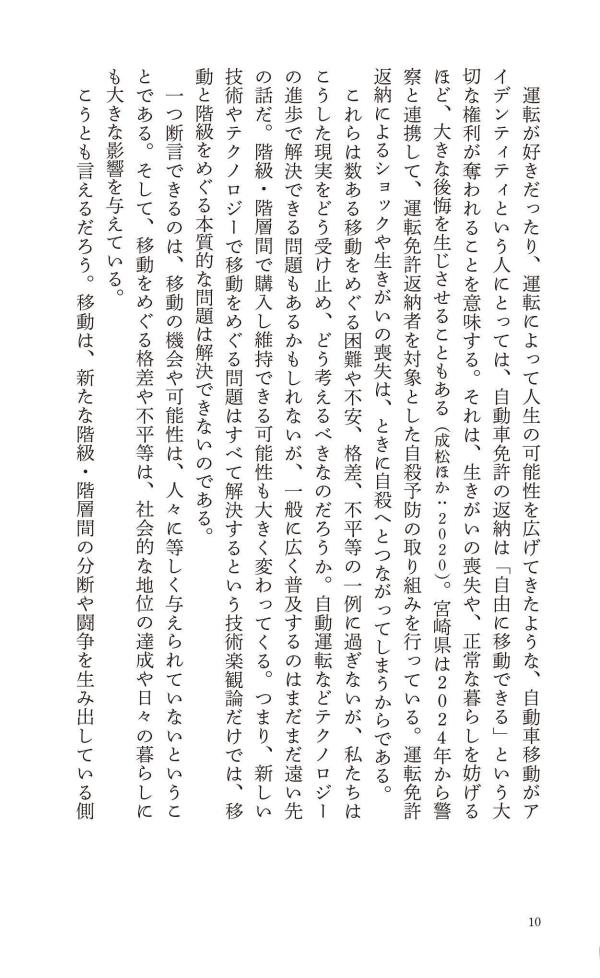 運転が好きだったり、運転によって人生の可能性を広げてきたような、自動車移動がア
イデンティティという人にとっては、自動車免許の返納は「自由に移動できる」という大
切な権利が奪われることを意味する。それは、生きがいの喪失や、正常な暮らしを妨げる
ほど、大きな後悔を生じさせることもある（成松ほか：2020）。宮崎県は2024年から警
察と連携して、運転免許返納者を対象とした自殺予防の取り組みを行っている。運転免許
返納によるショックや生きがいの喪失は、ときに自殺へとつながってしまうからである。
これらは数ある移動をめぐる困難や不安、格差、不平等の一例に過ぎないが、私たちは
こうした現実をどう受け止め、どう考えるべきなのだろうか。自動運転などテクノロジー
の進歩で解決できる問題もあるかもしれないが、一般に広く普及するのはまだまだ遠い先
の話だ。階級・階層間で購入し維持できる可能性も大きく変わってくる。つまり、新しい
技術やテクノロジーで移動をめぐる問題はすべて解決するという技術楽観論だけでは、移
動と階級をめぐる本質的な問題は解決できないのである。
一つ断言できるのは、移動の機会や可能性は、人々に等しく与えられていないというこ
とである。そして、移動をめぐる格差や不平等は、社会的な地位の達成や日々の暮らしに
も大きな影響を与えている。
こうとも言えるだろう。移動は、新たな階級・階層間の分断や闘争を生み出している側
10